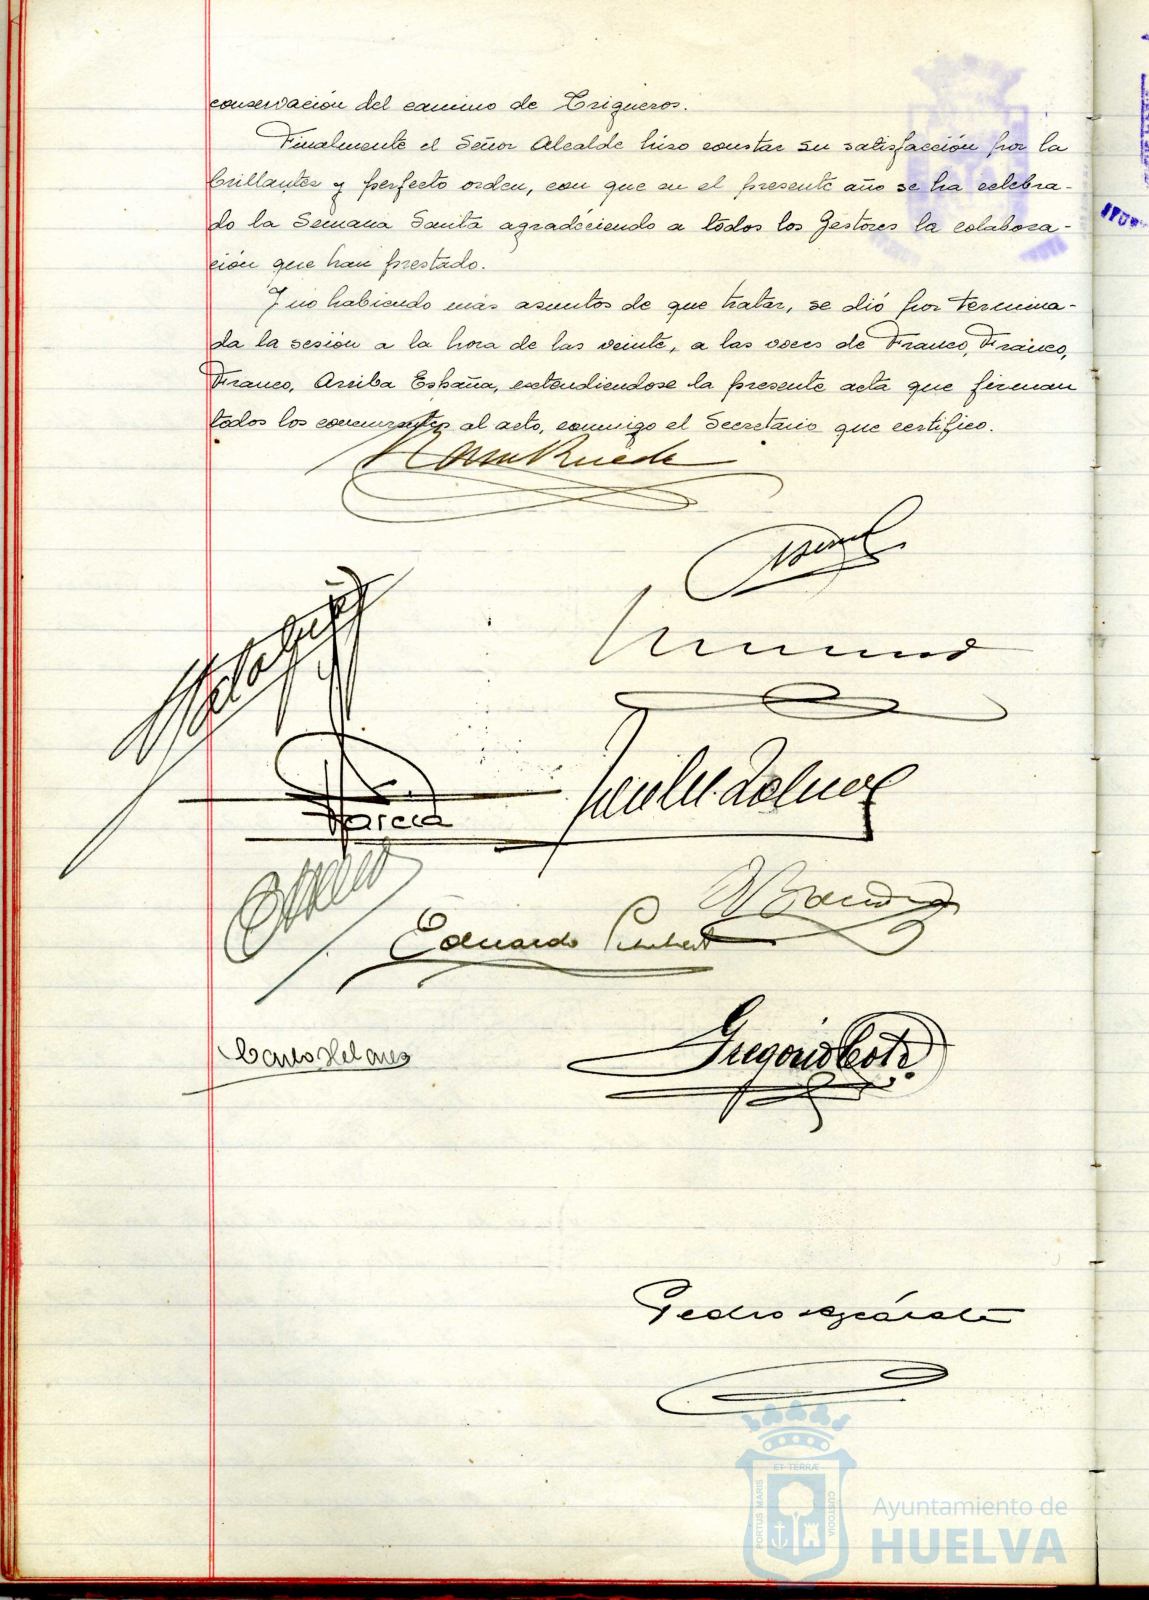 conservación del camino de Trigueros.
Finalmente el Señor Alcalde hiso constar su satisfacción por la
brillantes y perfecto orden, con que en el presente año se ha celebra-
do la Semana Santa agradeciendo a todos los Gestores la colabora-
ción que han prestado.
Y no habiendo más asuntos de que tratar, se dió por termina-
da la sesión a la hora de las veinte, a las voces de Franco, Franco,
Franco, Arriba España, extendiendose la presente acta que firman
todos los concurrentes al acto, conmigo el Secretario que certifico.
Rueda
García
Eduardo
Gregorio
Pedro
ET TERRÆ
PORTUS MARIS
CUSTODIA
Ayuntamiento de
HUELVA